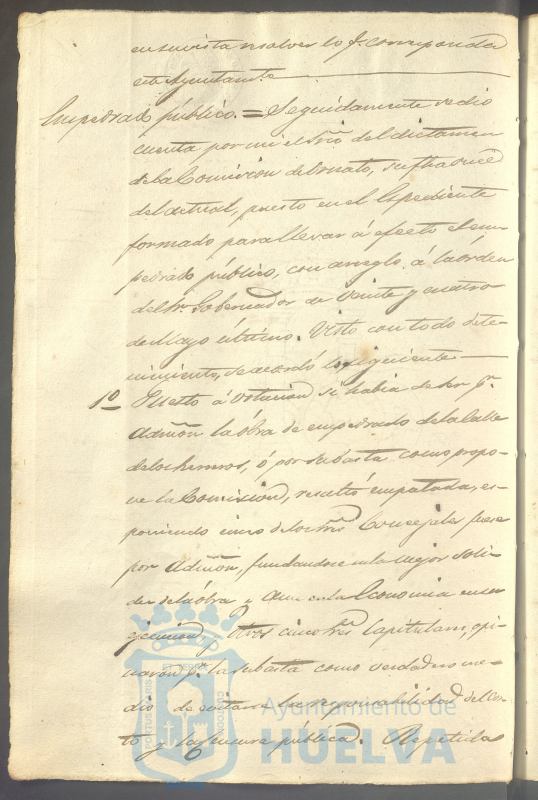 en su vista resolver lo q.e corresponda
este Ayuntam.to
Empedrado público. = Seguidamente se dio
cuenta por mi el Srio del dictamen
de la Comision de Ornato, su fha once
del actual, puesto en el Espediente
formado para llevar á efecto el em-
pedrado público, con arreglo á la orden
del Sr. Gobernador de veinte y cuatro
de Mayo último. Visto con todo dete-
nimiento, se acordó lo siguiente
1º Puesto á votacion si habia de ser p.r
Admon la obra de empedrado de la Calle
de los herreros, ó por subasta como propo-
ne la Comision, resultó empatada, es-
poniendo cinco de los Sres Concejales fuese
por Admon, fundandose en la mejor soli-
dez de la obra y aun en la Economia en su
egecucion, y otros cinco Sres Capitulares, opi-
naron p.r la subasta como verdadero me-
dio de evitarse la responsabilidad del Cos-
to y la censura pública. Repetida
Ayuntamiento de
HUELVA
PORTUS MARIS ET TERRAE CUSTODIA